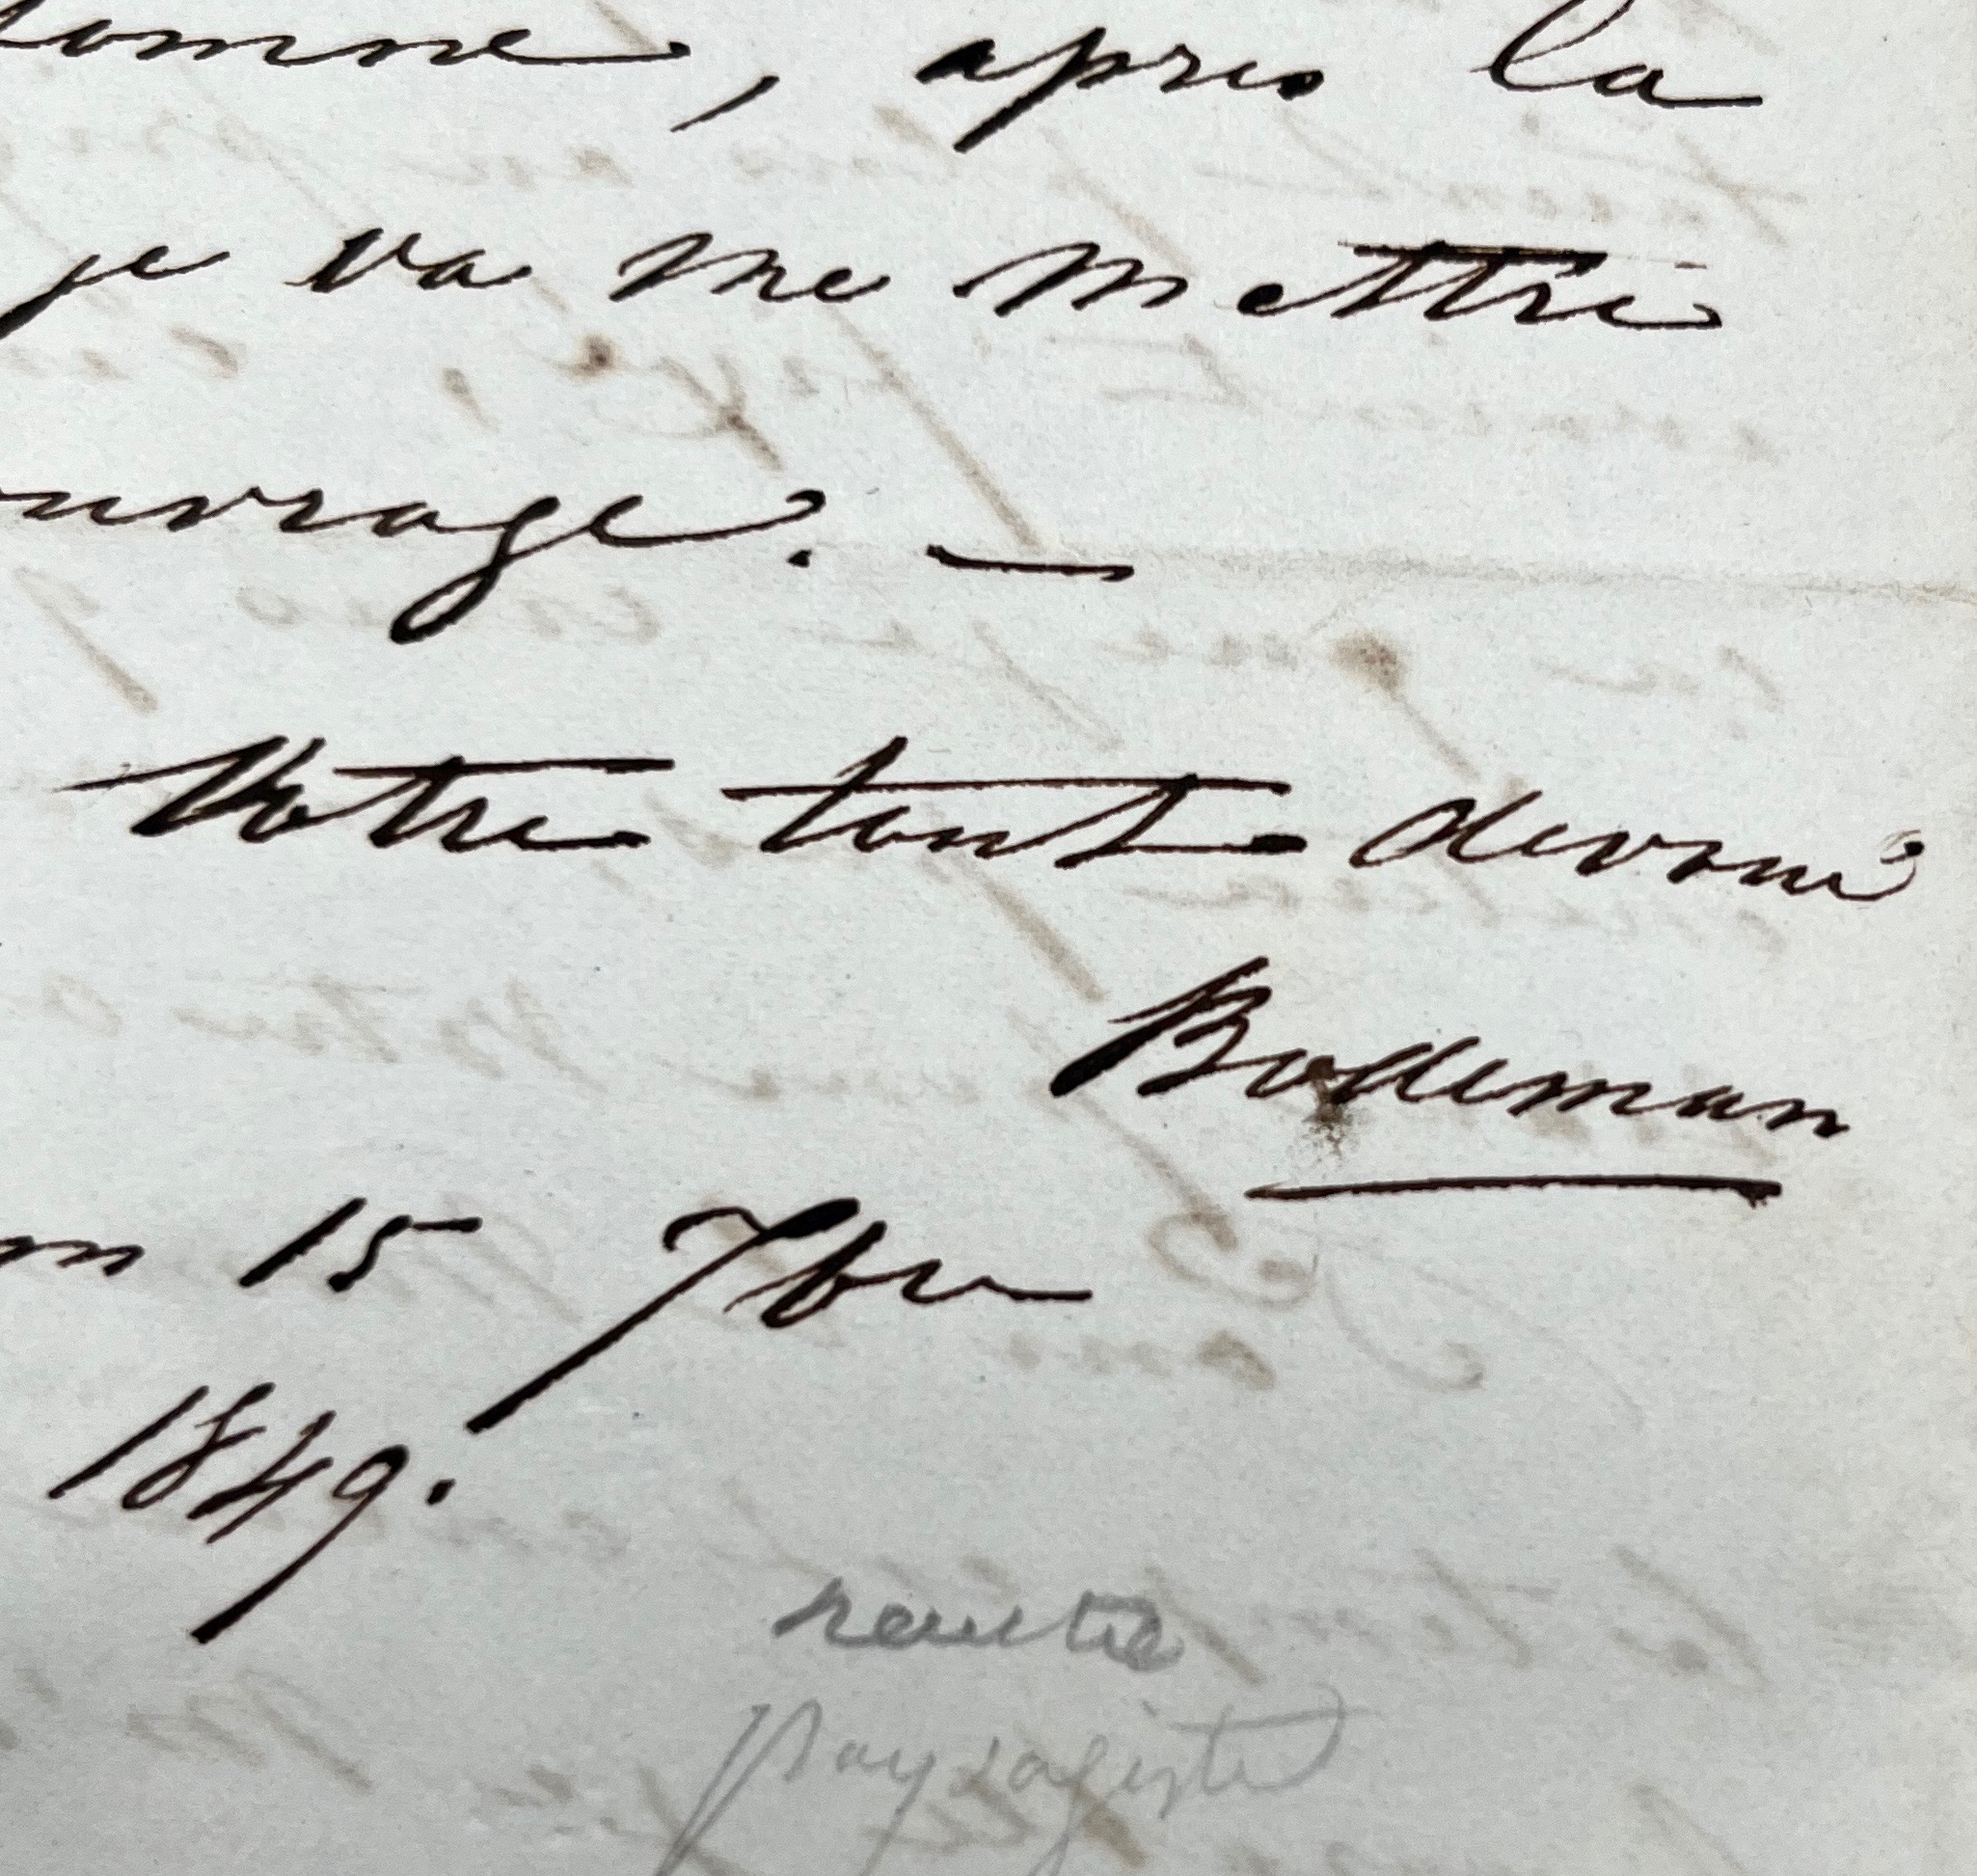 tomne, apres la
je va me mettre
ouvrage. —
Votre tout devoué
Bodeman
15 7bre
1849.
paysagiste